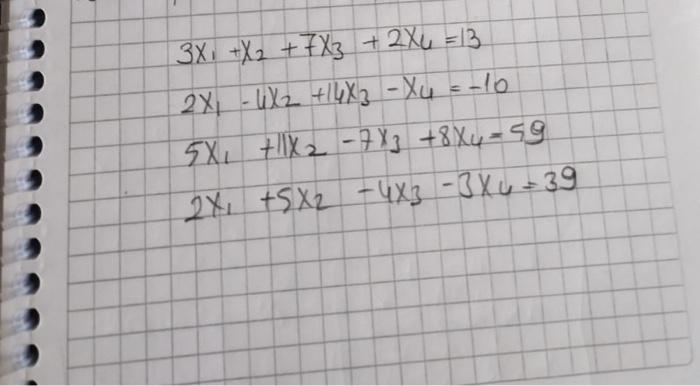 3x₁ +x₂ +7x₃ +2x₄ =13
2x₁ -4x₂ +14x₃ -x₄ =-10
5x₁ +11x₂ -7x₃ +8x₄=59
2x₁ +5x₂ -4x₃ -3x₄=39